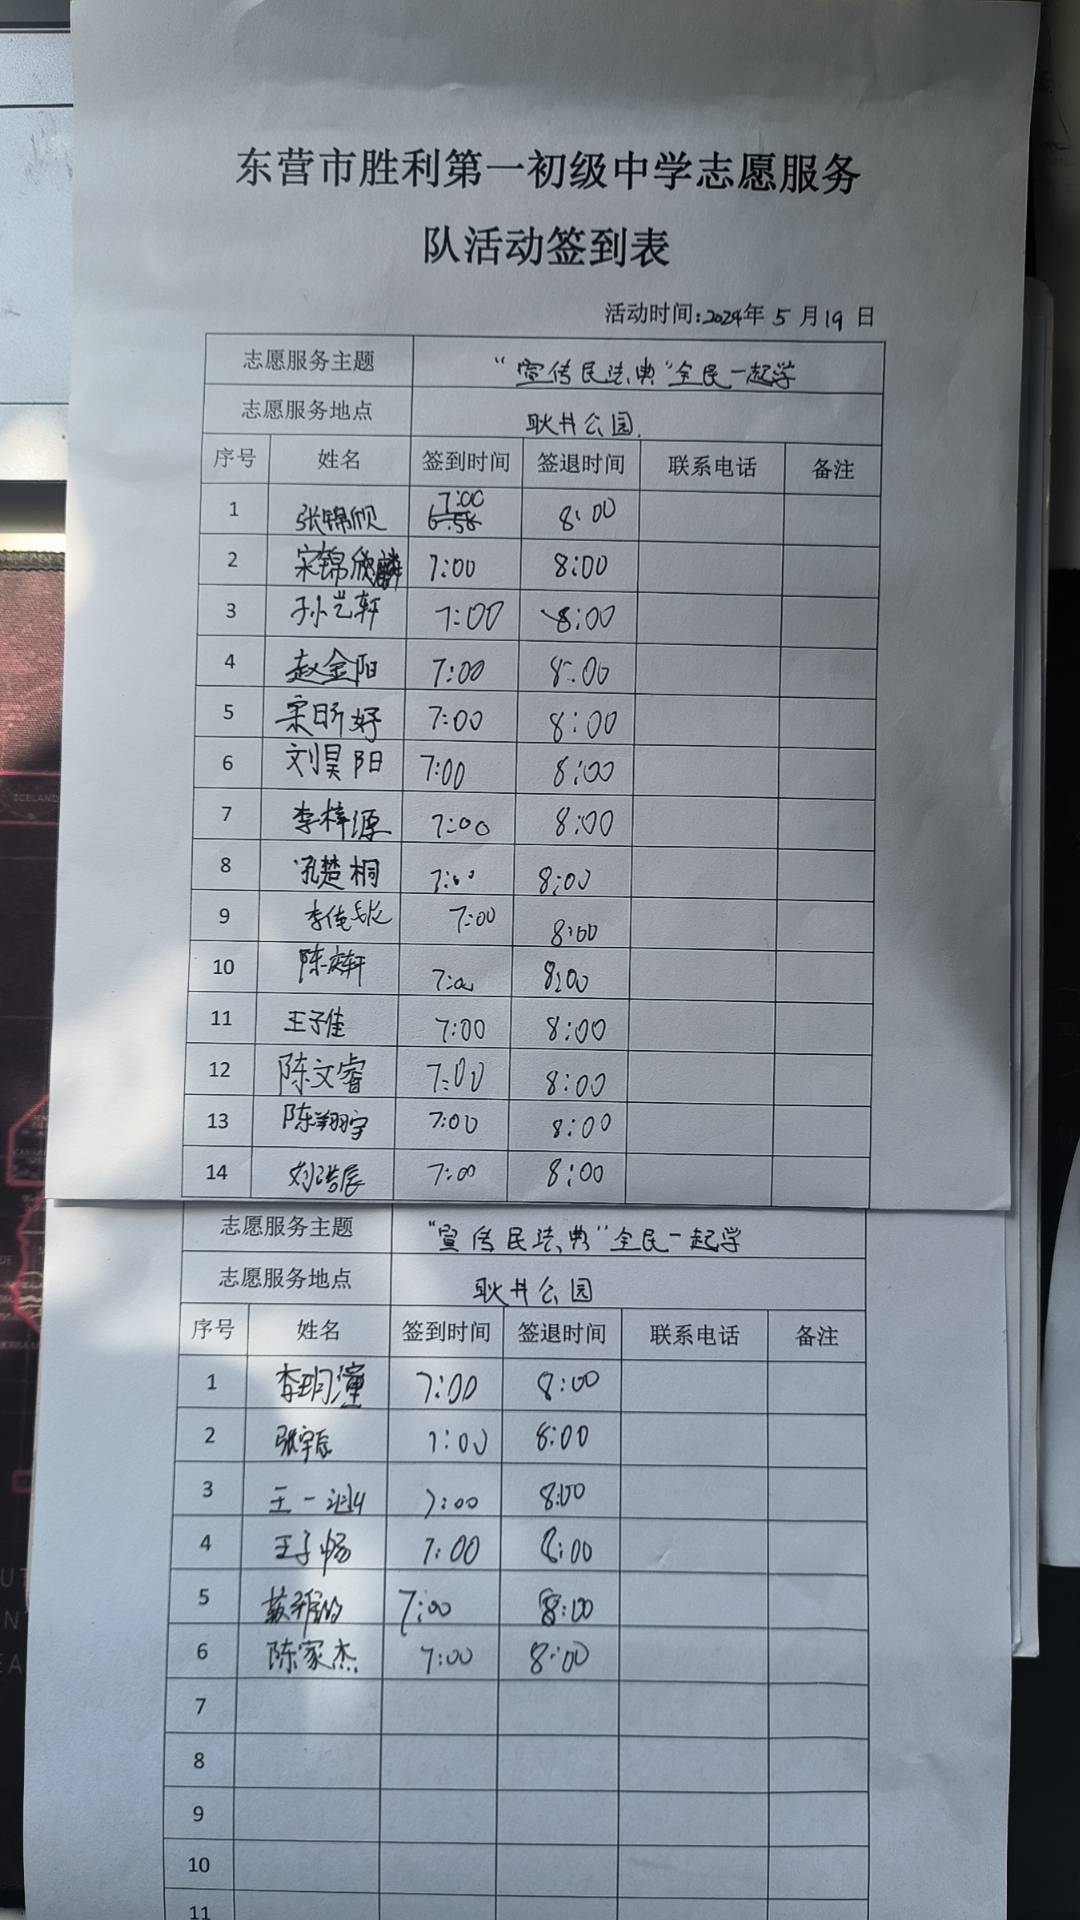 东营市胜利第一初级中学志愿服务
队活动签到表
活动时间:2024年 5 月 19 日
志愿服务主题 “宣传民法典”全民一起学
志愿服务地点 耿井公园.
序号 姓名 签到时间 签退时间 联系电话 备注
1 张锦欣 7:00 8:00
2 宋锦麟 7:00 8:00
3 孙艺轩 7:00 8:00
4 赵金阳 7:00 8:00
5 宋昕妤 7:00 8:00
6 刘昊阳 7:00 8:00
7 李梓源 7:00 8:00
8 孔楚桐 7:00 8:00
9 7:00 8:00
10 陈奕轩 7:00 8:00
11 王子佳 7:00 8:00
12 陈文睿 7:00 8:00
13 陈翔宇 7:00 8:00
14 刘浩辰 7:00 8:00
志愿服务主题 “宣传民法典”全民一起学
志愿服务地点 耿井公园
序号 姓名 签到时间 签退时间 联系电话 备注
1 李玥潼 7:00 8:00
2 张宇辰 7:00 8:00
3 王一 7:00 8:00
4 王子畅 7:00 8:00
5 7:00 8:00
6 陈家杰 7:00 8:00
7
8
9
10
11